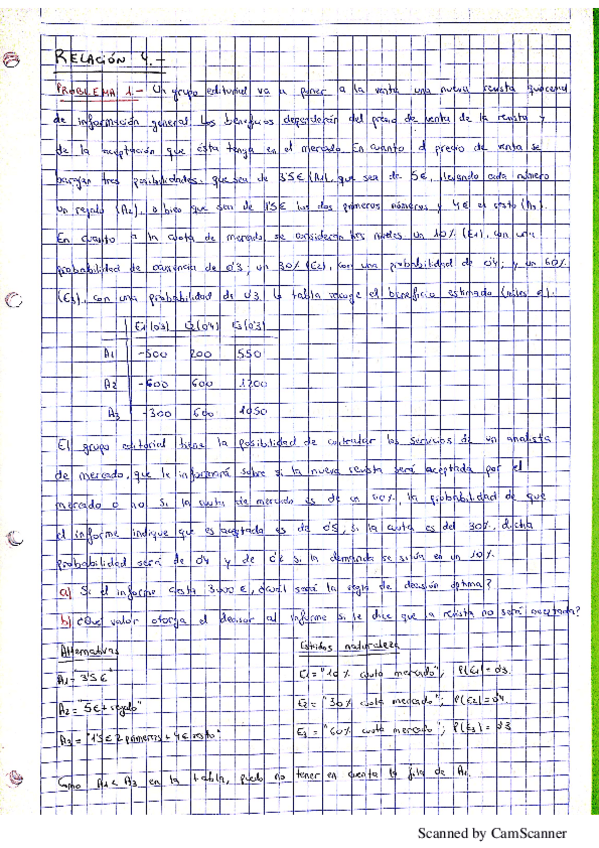 RELACIÓN 4.-
PROBLEMA 1.- Un grupo editorial va a poner a la venta una nueva revista quincenal
de información general. Los beneficios dependerán del precio de venta de la revista y
de la aceptación que ésta tenga en el mercado. En cuanto al precio de venta se
barajan tres posibilidades: que sea de 3'5€ (A1), que sea de 5€, llevando cada número
un regalo (A2), o bien que sea de 1'5€ los dos primeros números y 4€ el resto (A3).
En cuanto a la cuota de mercado, se consideran tres niveles un 10% (E1), con una
probabilidad de ocurrencia de 0'3; un 30% (E2), con una probabilidad de 0'4; y un 60%
(E3), con una probabilidad de 0'3. La tabla recoge el beneficio estimado (miles €).
E1(0'3) E2(0'4) E3(0'3)
A1 -500 200 550
A2 -600 600 1200
A3 -300 600 1050
El grupo editorial tiene la posibilidad de contratar los servicios de un analista
de mercado, que le informará sobre si la nueva revista será aceptada por el
mercado o no. Si la cuota de mercado es de un 60%, la probabilidad de que
el informe indique que es aceptada es de 0'5, si la cuota es del 30%, dicha
probabilidad será de 0'4 y de si la demanda se sitúa en un 10%.
a) Si el informe cuesta 3000€, ¿cuál será la regla de decisión óptima?
b) ¿Qué valor otorga el decisor al informe si le dice que la revista no será aceptada?
Alternativas Estados naturaleza
A1 = "3'5€" E1 = "10% cuota mercado"; P(E1) = 0'3.
A2 = "5€ + regalo" E2 = "30% cuota mercado"; P(E2) = 0'4.
A3 = "1'5€ 2 primeros + 4€ resto" E3 = "60% cuota mercado"; P(E3) = 0'3
Como A1 < A3 en la tabla, puedo no tener en cuenta la fila de A1.
Scanned by CamScanner